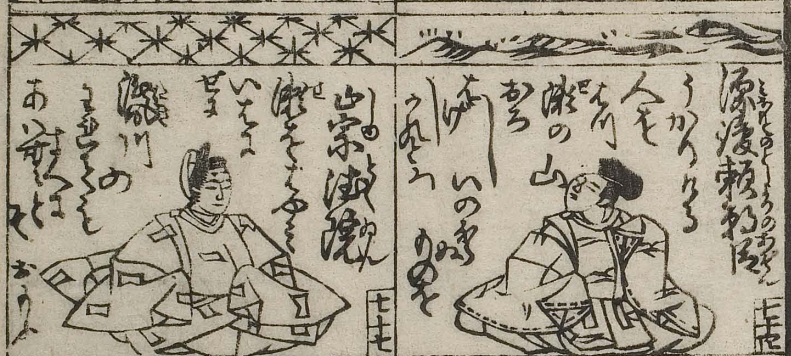 源俊頼朝臣
うかりける
人を
はつ
瀬の山
おろ
し
はげし
かれとは
いのらぬ
ものを
七十四
崇徳院
瀬をはやみ
いはに
せか
瀧川
の
われても
すへに
あはんと
ぞ
おもふ
七十七